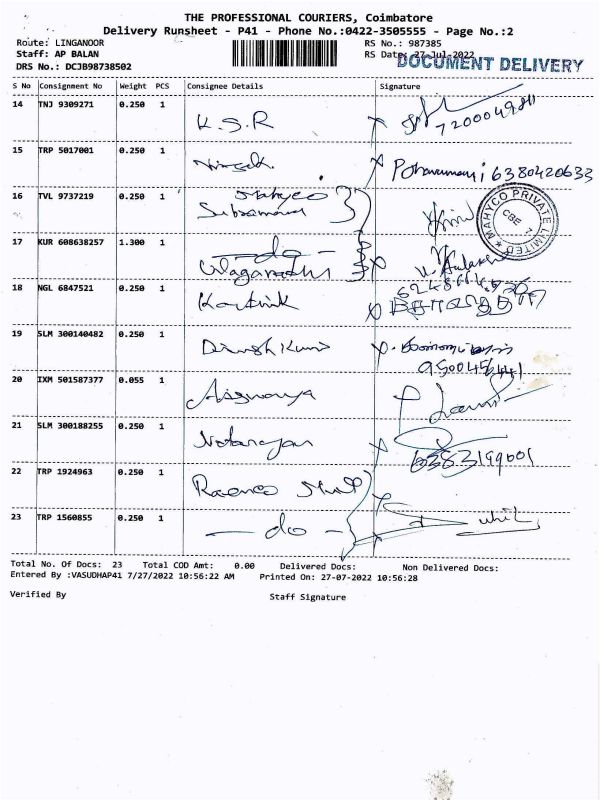 THE PROFESSIONAL COURIERS, Coimbatore
Delivery Runsheet - P41 - Phone No.:0422-3505555 - Page No.:2
Route: LINGANOOR RS No.: 987385
Staff: AP BALAN RS Date: 27-Jul-2022
DRS No.: DCJB98738502 DOCUMENT DELIVERY
S No Consignment No Weight PCS Consignee Details Signature
14 TNJ 9309271 0.250 1 K.S.R
15 TRP 5017001 0.250 1 6380420633
16 TVL 9737219 0.250 1 Mahyco
MAHYCO PRIVATE LIMITED CBE
17 KUR 608638257 1.300 1 - do -
18 NGL 6847521 0.250 1 Karthik
19 SLM 300140482 0.250 1 Dinesh Kumar
20 IXM 501587377 0.055 1 Aiswarya
21 SLM 300188255 0.250 1 Natarajan
6383199001
22 TRP 1924963 0.250 1
23 TRP 1560855 0.250 1 - do -
Total No. Of Docs: 23 Total COD Amt: 0.00 Delivered Docs: Non Delivered Docs:
Entered By :VASUDHAP41 7/27/2022 10:56:22 AM Printed On: 27-07-2022 10:56:28
Verified By Staff Signature